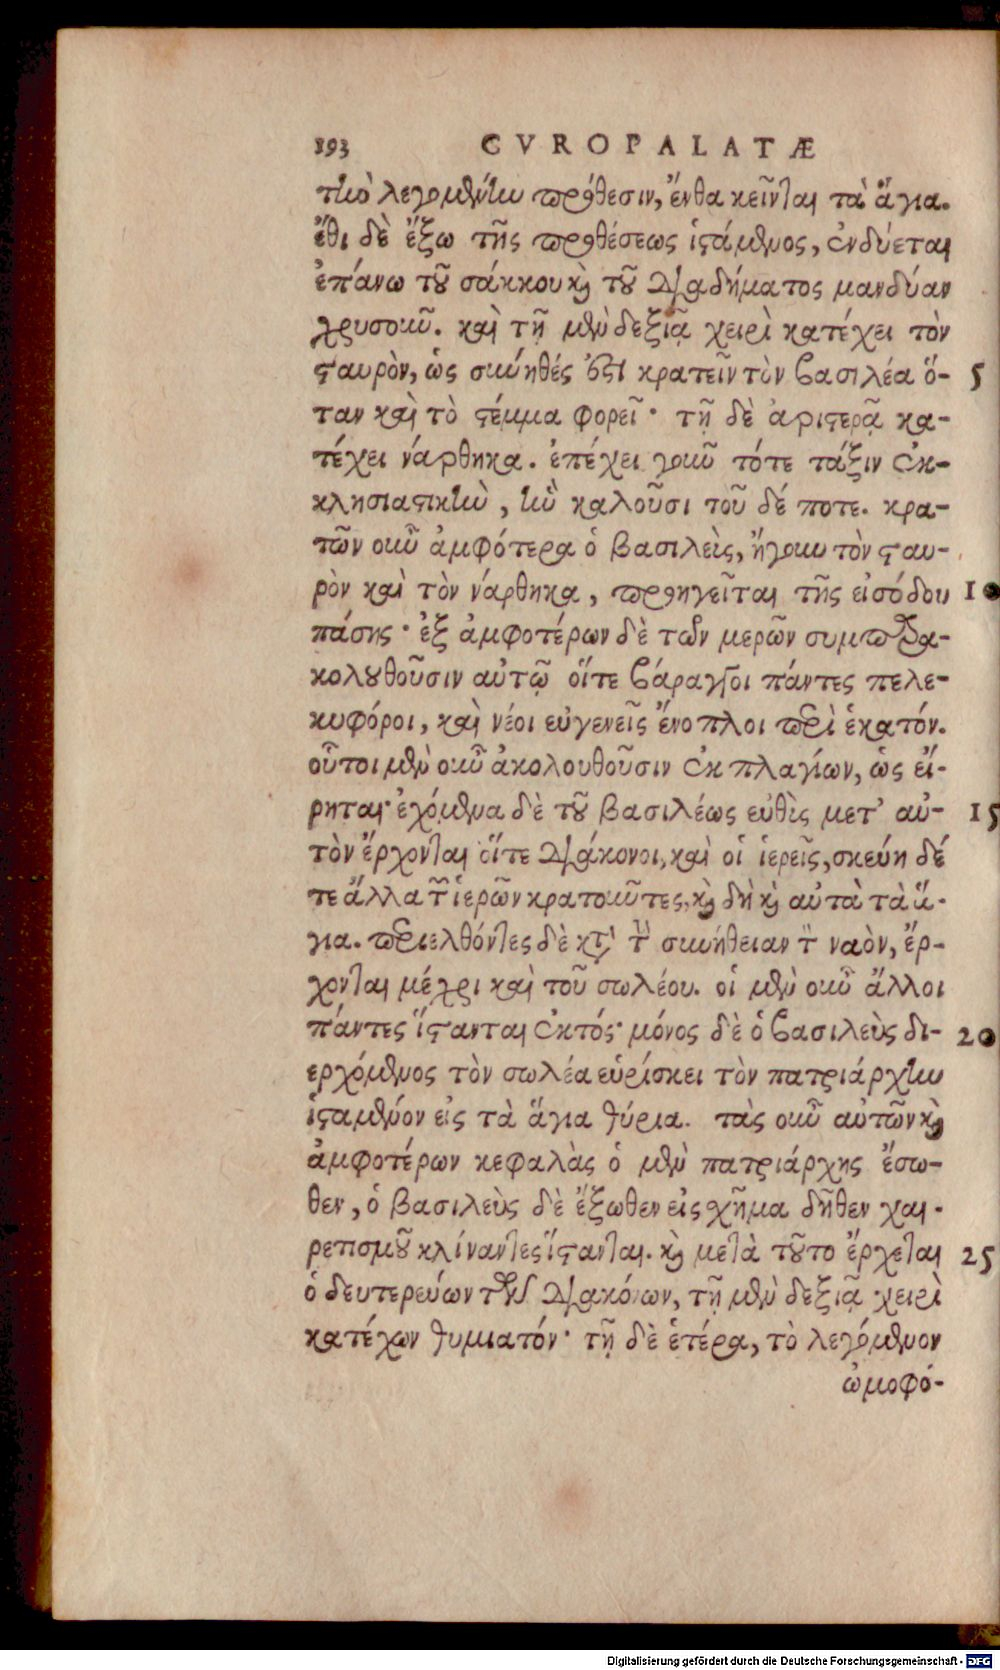 193 CVROPALATÆ
τὴν λεγομένην πρόθεσιν, ἔνθα κεῖνται τὰ ἅγια.
ἔθι δὲ ἔξω τῆς προθέσεως ἱστάμενος, ἐνδύεται
ἐπάνω τοῦ σάκκου καὶ τοῦ διαδήματος μανδύαν
χρυσοῦν. καὶ τῇ μὲν δεξιᾷ χειρὶ κατέχει τὸν
σταυρὸν, ὡς σύνηθές ἐστι κρατεῖν τὸν βασιλέα ὅ- 5
ταν καὶ τὸ στέμμα φορεῖ· τῇ δὲ ἀριστερᾷ κα-
τέχει νάρθηκα. ἐπέχει γοῦν τότε τάξιν ἐκ-
κλησιαστικὴν, ἣν καλοῦσι τοῦ δέ ποτε. κρα-
τῶν οὖν ἀμφότερα ὁ βασιλεὶς, ἤγουν τὸν σταυ-
ρὸν καὶ τὸν νάρθηκα, προηγεῖται τῆς εἰσόδου 10
πάσης· ἐξ ἀμφοτέρων δὲ τῶν μερῶν συμπαρα-
κολουθοῦσιν αὐτῷ οἵτε βάραγγοι πάντες πελε-
κυφόροι, καὶ νέοι εὐγενεῖς ἔνοπλοι περὶ ἑκατόν.
οὗτοι μὲν οὖν ἀκολουθοῦσιν ἐκ πλαγίων, ὡς εἴ-
ρηται· ἐχόμενα δὲ τοῦ βασιλέως εὐθὶς μετ' αὐ- 15
τὸν ἔρχονται οἵτε διάκονοι, καὶ οἱ ἱερεῖς, σκεύη δέ
τε ἄλλα τῶν ἱερῶν κρατοῦντες, καὶ δὴ καὶ αὐτὰ τὰ ἅ-
για. περιελθόντες δὲ κατὰ τὴν συνήθειαν τὸν ναὸν, ἔρ-
χονται μέχρι καὶ τοῦ σωλέου. οἱ μὲν οὖν ἄλλοι
πάντες ἵστανται ἐκτός· μόνος δὲ ὁ βασιλεὺς δι- 20
ερχόμενος τὸν σωλέα εὑρίσκει τὸν πατριάρχην
ἱσταμένον εἰς τὰ ἅγια θύρια. τὰς οὖν αὐτῶν καὶ
ἀμφοτέρων κεφαλὰς ὁ μὲν πατριάρχης ἔσω-
θεν, ὁ βασιλεὺς δὲ ἔξωθεν εἰς χῆμα δῆθεν χαι-
ρετισμοῦ κλίναντες ἵστανται. καὶ μετὰ τοῦτο ἔρχεται 25
ὁ δευτερεύων τῶν διακόνων, τῇ μὲν δεξιᾷ χειρὶ
κατέχων θυμιατόν· τῇ δὲ ἑτέρα, τὸ λεγόμενον
ὠμοφό-
Digitalisierung gefördert durch die Deutsche Forschungsgemeinschaft - DFG